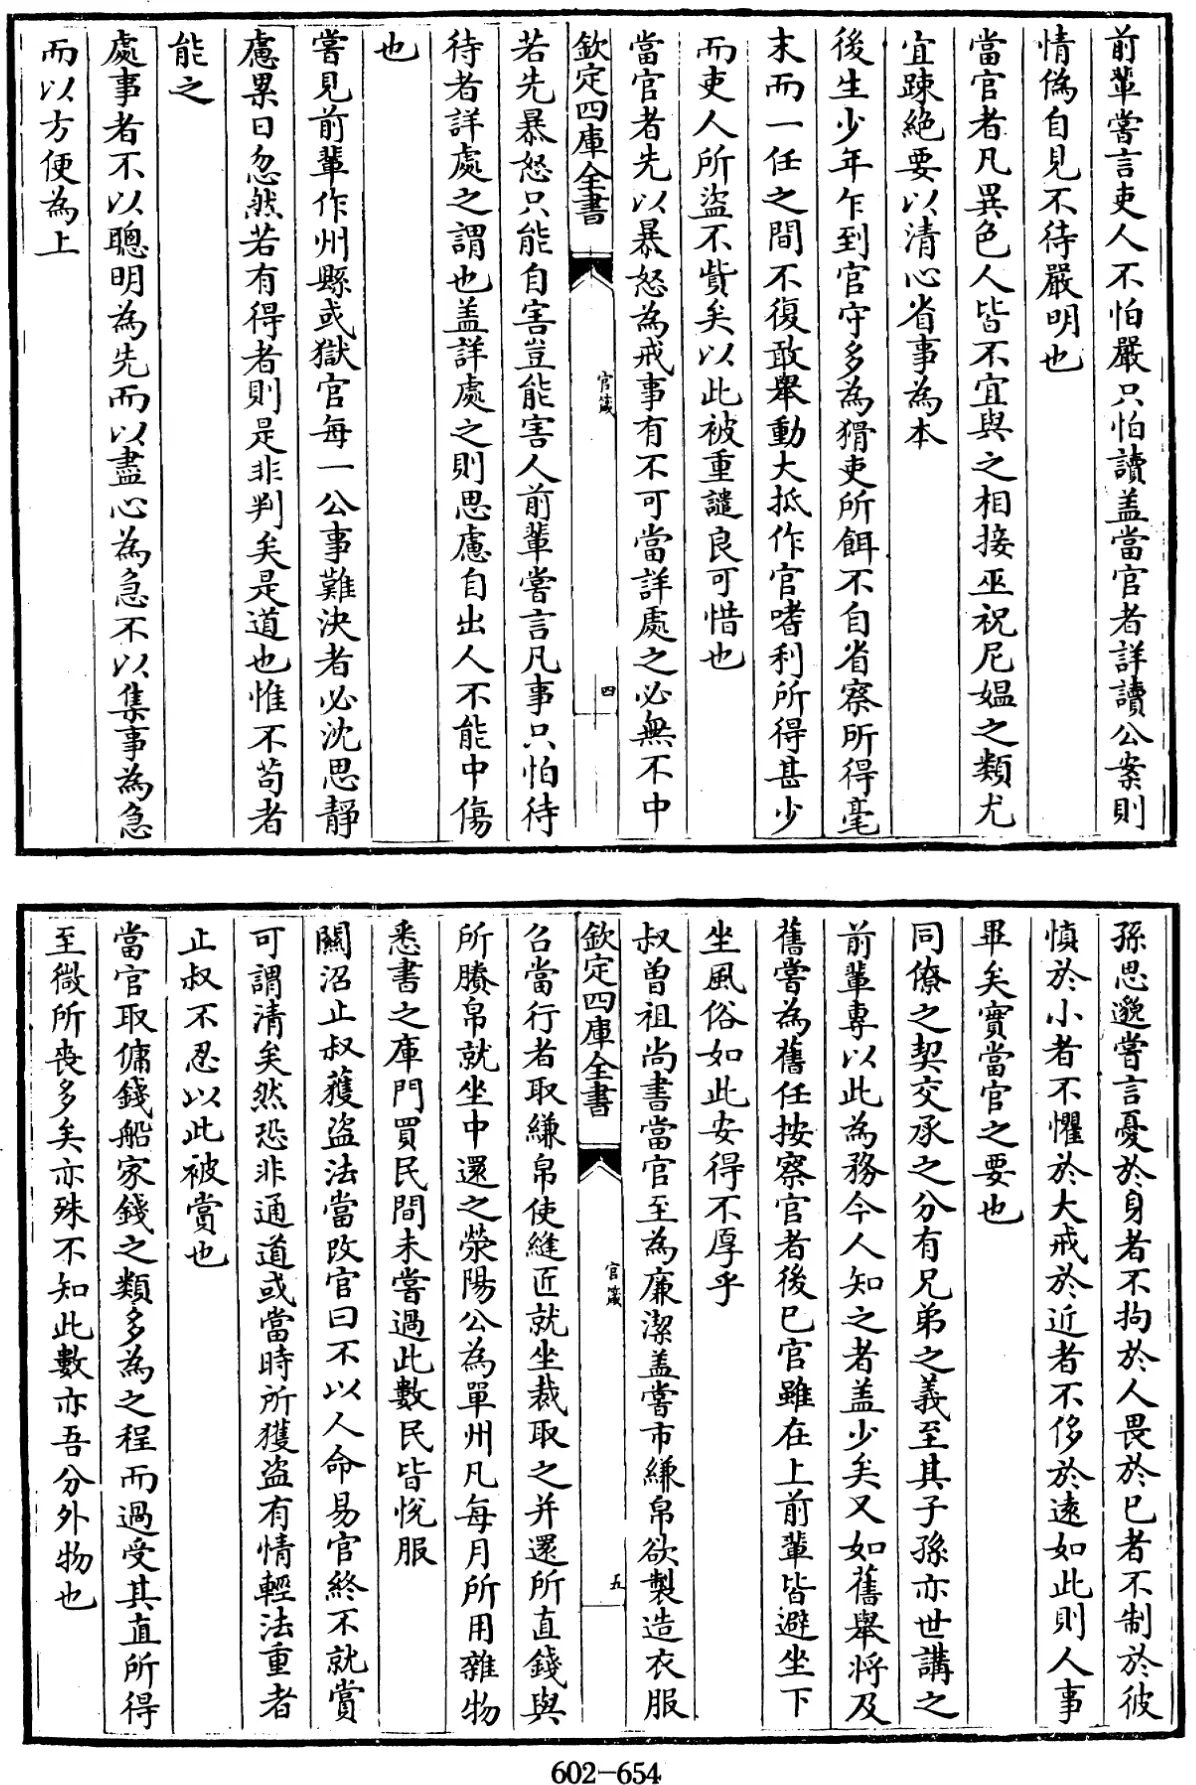 前輩嘗言吏人不怕嚴只怕讀盖當官者詳讀公案則
情偽自見不待嚴明也
當官者凡異色人皆不宜與之相接巫祝尼媼之類尤
宜疎絶要以清心省事為本
後生少年乍到官守多為猾吏所餌不自省察所得毫
末而一任之間不復敢舉動大抵作官嗜利所得甚少
而吏人所盜不貲矣以此被重譴良可惜也
當官者先以暴怒為戒事有不可當詳處之必無不中
欽定四庫全書
官箴
四
若先暴怒只能自害豈能害人前輩嘗言凡事只怕待
待者詳處之謂也盖詳處之則思慮自出人不能中傷
也
嘗見前輩作州縣或獄官每一公事難決者必沈思靜
慮累日忽然若有得者則是非判矣是道也惟不苟者
能之
處事者不以聰明為先而以盡心為急不以集事為急
而以方便為上
孫思邈嘗言憂於身者不拘於人畏於已者不制於彼
慎於小者不懼於大戒於近者不侈於遠如此則人事
畢矣實當官之要也
同僚之契交承之分有兄弟之義至其子孫亦世講之
前輩專以此為務今人知之者盖少矣又如舊舉將及
舊嘗為舊任按察官者後已官雖在上前輩皆避坐下
坐風俗如此安得不厚乎
叔曽祖尚書當官至為廉潔盖嘗市縑帛欲製造衣服
欽定四庫全書
官箴
五
召當行者取縑帛使縫匠就坐裁取之并還所直錢與
所賸帛就坐中還之滎陽公為單州凡每月所用雜物
悉書之庫門買民間未嘗過此數民皆悅服
關沼止叔獲盜法當改官曰不以人命易官終不就賞
可謂清矣然恐非通道或當時所獲盜有情輕法重者
止叔不忍以此被賞也
當官取傭錢船家錢之類多為之程而過受其直所得
至微所喪多矣亦殊不知此數亦吾分外物也
602-654